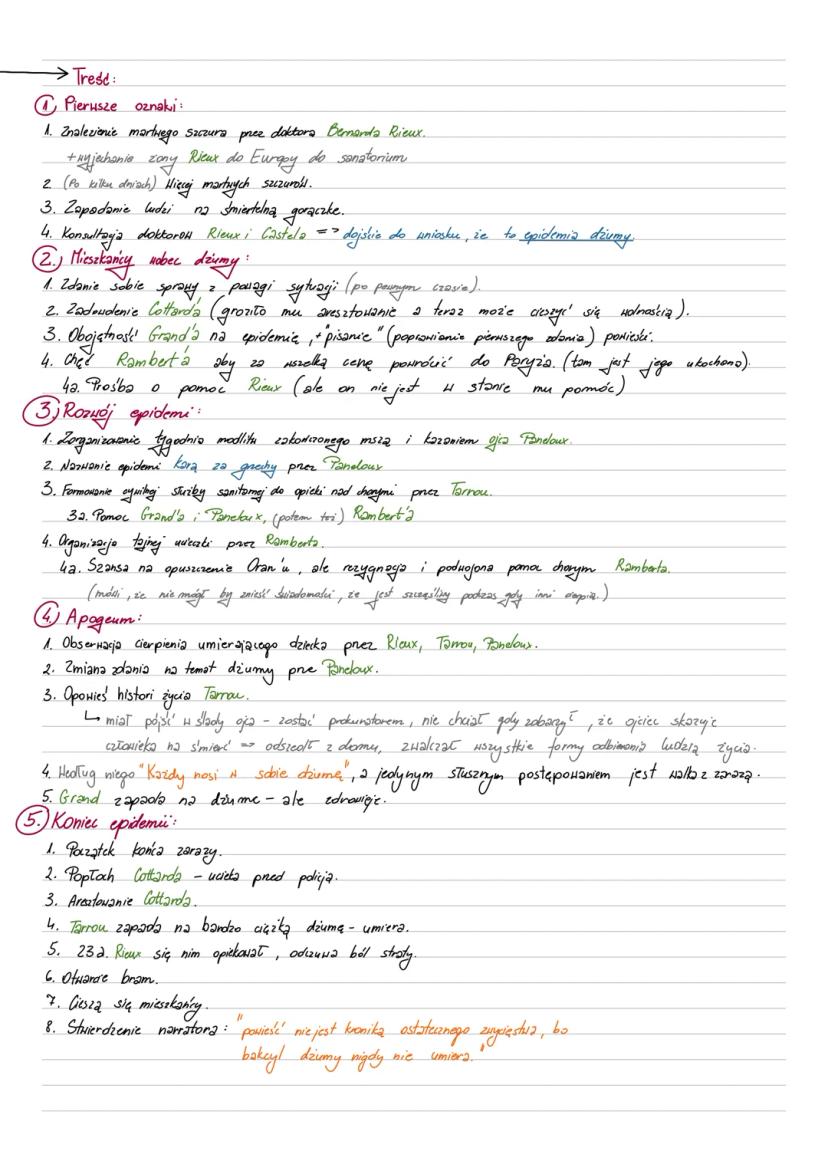 → Treść:
① Pierwsze oznaki:
1. Znalezienie martwego szczura przez doktora Bernarda Rieux.
+wyjechanie żony Rieux do Europy do sanatorium
2 (Po kilku dniach) Więcej martwych szczurów.
3. Zapadanie ludzi na śmiertelną gorączkę.
4. Konsultacja doktorów Rieux i Castela => dojście do wniosku, że to epidemia dżumy.
②. Mieszkańcy wobec dżumy:
1. Zdanie sobie sprawy z powagi sytuacji (po pewnym czasie).
2. Zadowolenie Cottard'a (groziło mu aresztowanie a teraz może cieszyć się wolnością).
3. Obojętność Grand'a na epidemię, + "pisanie" (poprawianie pierwszego zdania) powieści.
4. Chęć Rambert'a aby za wszelką cenę powrócić do Paryża. (tam jest jego ukochana).
4a. Prośba o pomoc Rieux (ale on nie jest w stanie mu pomóc)
③. Rozwój epidemi:
1. Zorganizowanie tygodnia modlitw zakończonego mszą i kazaniem ojca Paneloux.
2. Nazwanie epidemi karą za grzechy przez Paneloux
3. Formowanie cywilnej służby sanitarnej do opieki nad chorymi przez Tarrou.
3a. Pomoc Grand'a i Paneloux, (potem też) Rambert'a
4. Organizacja tajnej ucieczki przez Ramberta.
4a. Szansa na opuszczenie Oran'u, ale rezygnacja i podwojona pomoc chorym Ramberta.
(mówi, że nie mógł by znieść świadomości, że jest szczęśliwy podczas gdy inni cierpią.)
④. Apogeum:
1. Obserwacja cierpienia umierającego dziecka przez Rieux, Tarrou, Paneloux.
2. Zmiana zdania na temat dżumy prze Paneloux.
3. Opowieś histori życia Tarrou.
↳ miał pójść w ślady ojca - zostać prokuratorem, nie chciał gdy zobaczył, że ojciec skazuje
człowieka na śmierć => odszedł z domu, zwalczał wszystkie formy odbierania ludzią życia.
4. Według niego "Każdy nosi w sobie dżumę", a jedynym słusznym postępowaniem jest walka z zarazą.
5. Grand zapada na dżumę - ale zdrowieje.
⑤. Koniec epidemii:
1. Początek końca zarazy.
2. Popłoch Cottarda - ucieka przed policją.
3. Aresztowanie Cottarda.
4. Tarrou zapada na bardzo ciężką dżumę - umiera.
5. Rieux się nim opiekował, odczuwa ból straty.
6. Otwarcie bram.
7. Cieszą się mieszkańcy.
8. Stwierdzenie narratora: "powieść nie jest kroniką ostatecznego zwycięstwa, bo
bakcyl dżumy nigdy nie umiera."